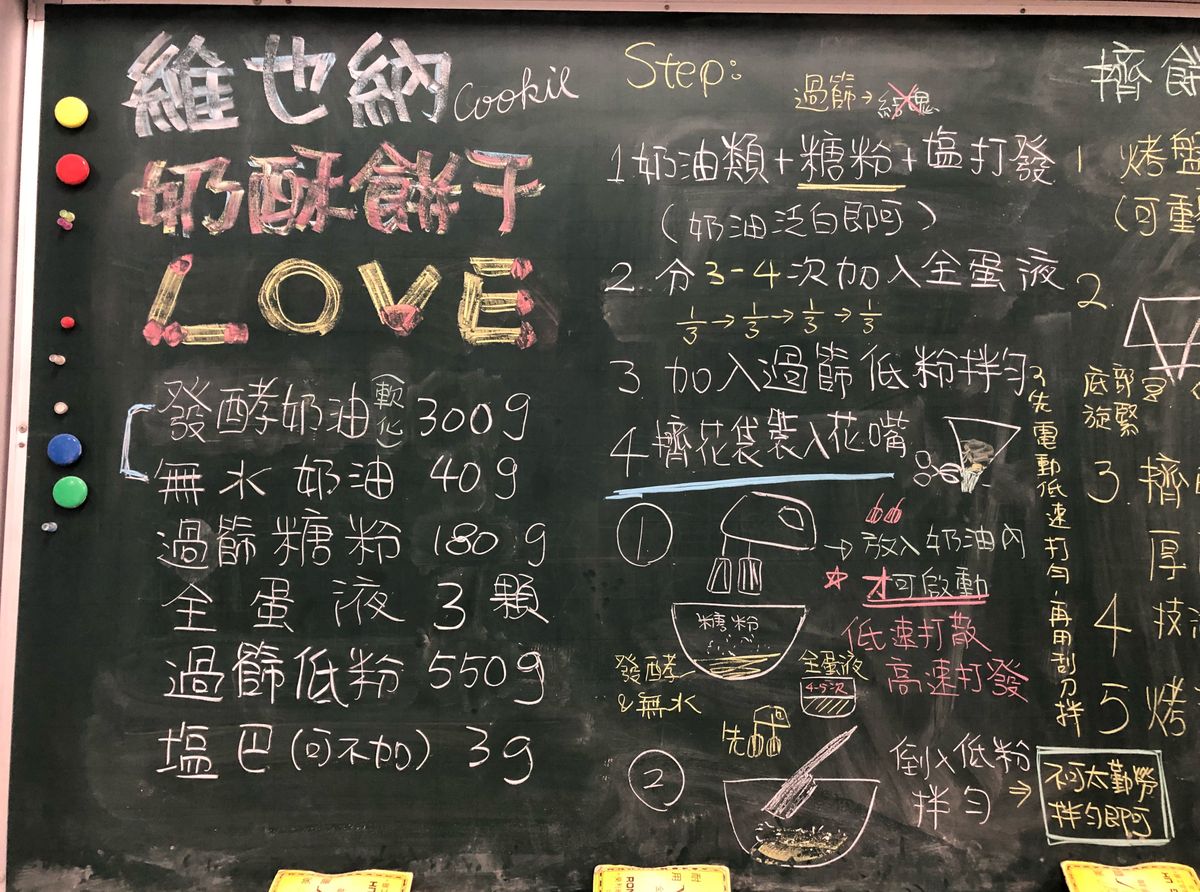 維也納 Cookie
奶酥餅干
LOVE
發酵奶油(軟化) 300g
無水奶油 40g
過篩糖粉 180g
全蛋液 3顆
過篩低粉 550g
塩巴(可不加) 3g
Step:
過篩→結塊
1.奶油類+糖粉+塩打發
(奶油泛白即可)
2.分3-4次加入全蛋液
1/3→1/3→1/3→1/3
3.加入過篩低粉拌勻
4.擠花袋裝入花嘴
①
→放入奶油內
☆才可啟動
低速打散
高速打發
糖粉
發酵
&無水
全蛋液
4-5次
先
②
倒入低粉
拌勻
⇒
不可太勤勞
拌勻即可
先電動低速打勻,再用刮刀拌
擠餅
1 烤盤
(可重
2.
底部
旋緊
3.擠
厚
4
5 烤